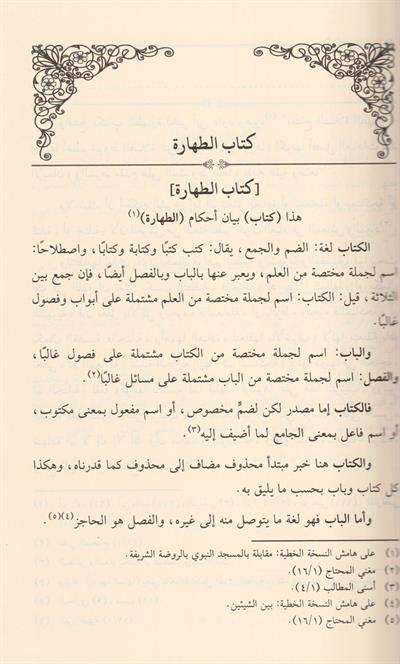 كتاب الطهارة
[كتاب الطهارة]
هذا (كتاب) بيان أحكام (الطهارة)(١)
الكتاب لغة: الضم والجمع، يقال: كتب كتبًا وكتابة وكتابا، واصطلاحًا:
اسم لجملة مختصة من العلم، ويعبر عنها بالباب وبالفصل أيضًا، فإن جمع بين
الثلاثة، قيل: الكتاب: اسم لجملة مختصة من العلم مشتملة على أبواب وفصول
غالبًا.
والباب: اسم لجملة مختصة من الكتاب مشتملة على فصول غالبًا،
والفصل: اسم لجملة مختصة من الباب مشتملة على مسائل غالبًا(٢).
فالكتاب إما مصدر لكن لضمٍّ مخصوص، أو اسم مفعول بمعنى مكتوب،
أو اسم فاعل بمعنى الجامع لما أضيف إليه(٣).
والكتاب هنا خبر مبتدأ محذوف مضاف إلى محذوف كما قدرناه، وهكذا
كل كتاب وباب بحسب ما يليق به.
وأما الباب فهو لغة ما يتوصل منه إلى غيره، والفصل هو الحاجز(٤)(٥).
(١) على هامش النسخة الخطية: مقابلة بالمسجد النبوي بالروضة الشريفة.
(٢) مغني المحتاج (١٦/١)
(٣) أسنى المطالب (٤/١).
(٤) على هامش النسخة الخطية: بين الشيئين.
(٥) مغني المحتاج (١٦/١).